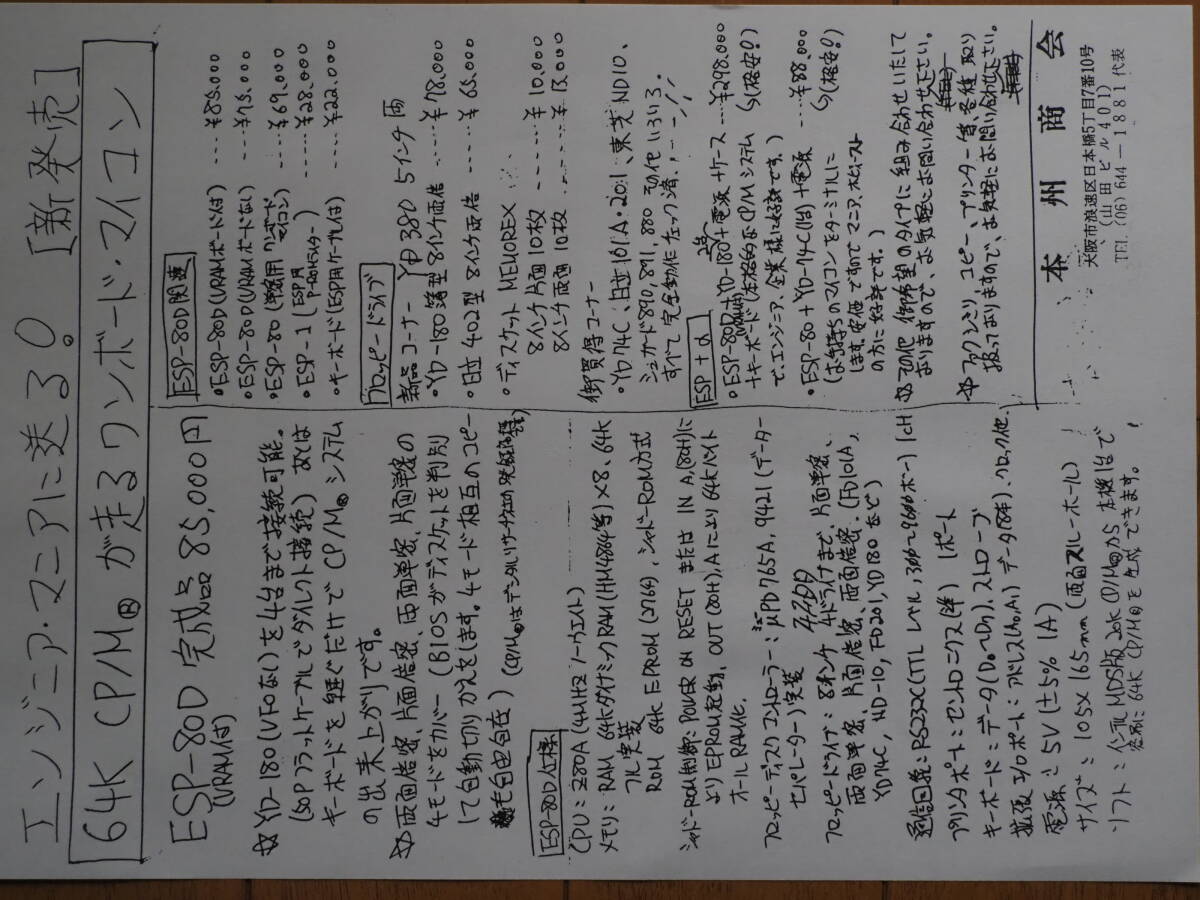 エンジニア・マニアに送る。[新発売]
64K CP/M® が走るワンボード・マイコン
ESP-80D 完成品 85,000円
(VRAM付)
☆ YD-180(VFOなし)を4台まで接続可能。
(50Pフラットケーブルでダイレクト接続) あとは
キーボードを継ぐだけで CP/M® システム
の出来上がりです。
☆ 両面倍密、片面倍密、両面単密、片面単密の
4モードをカバー (BIOSがディスケットを判別
して自動切りかえをします。4モード相互のコピー
も自由自在) (CP/M®はデジタルリサーチ社の
[ESP-80D仕様]
CPU : Z80A (4MHz ノーウエイト)
メモリ : RAM 64KダイナミックRAM(HM4864等)×8、64K
フル実装
ROM 64K EPROM (2764)、シャドーROM方式
シャドーROM制御 : POWER ON RESET または IN A,(80H)に
よりEPROM起動、OUT (80H),Aにより64Kバイト
オールRAM化。
フロッピーディスクコントローラー : μPD765A, 9421 (データー
セパレーター)実装
フロッピードライブ : 8インチ 4ドライブまで、片面単密、
両面単密、片面倍密、両面倍密、(FD101A,
YD74C, ND-10, FD201, YD180など)
通信回線 : RS232C(TTLレベル, 300~9600ボー) 1CH
プリンタポート : セントロニクス(準) 1ポート
キーボード : データ(D0~D7)、ストローブ
拡張I/Oポート : アドレス(A0,A1) データ(8本)、クロック他.
電源 : 5V (±5% 1A)
サイズ : 105×165mm (両面スルーホール)
ソフト : インテル MDS版 20K CP/M®から 本機1台で
容易に 64K CP/M®を生成できます。!
[ESP-80D関連]
・ESP-80D(VRAMボード付) ---- ¥85,000
・ESP-80D(VRAMボードなし) ---- ¥75,000
・ESP-80 (単密用ワンボードマイコン) ---- ¥69,000
・ESP-1 (ESP用P-ROMモニター) ---- ¥28,000
・キーボード(ESP用ケーブル付) ---- ¥22,000
[フロッピードライブ]
新品コーナー YD380 5インチ両
・YD-180薄型 8インチ両倍 ---- ¥78,000
・日立 402型 8インチ両倍 ---- ¥65,000
・ディスケット MEMOREX
8インチ片面10枚 ------ ¥10,000
8インチ両面10枚 ------ ¥13,000
御買得コーナー
・YD74C、日立101A・201、東芝ND10、
シュガート890,891,880 その他いろいろ。
すべて完全動作チェック済、---!!!
[ESP+α]
・ESP-80D(VRAM付)+YD-180 2台+電源+ケース --- ¥298,000
+キーボード (本格的なCP/Mシステム (格安?)
で、エンジニア、企業様に好評です。)
・ESP-80+YD-74C(1台)+電源 --- ¥88,000
(お手持ちのマイコンをターミナルに (格安?)
します。安価ですのでマニア、ホビースト
の方に好評です。)
☆ その他 御希望のタイプに組み合わせいたして
おりますので、お気軽にお問い合わせ下さい。
☆ ファクシミリ、コピー、プリンター等、各種取り
扱っておりますので、お気軽にお問い合わせ下さい。
本州商会
大阪市浪速区日本橋5丁目7番10号
(山田ビル401)
TEL (06) 644-1881 代表